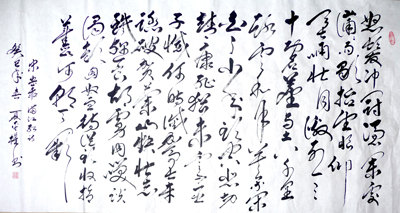 怒髮冲冠憑闌處瀟
瀟雨歇抬望眼仰
天長嘯壯懷激烈三
十功名塵與土八千里
路雲和月莫等閒
白了少年頭空悲切
靖康恥猶未雪臣
子憾何時滅駕長車
踏破賀蘭山缺壯志
飢餐胡虜肉笑談
渴飲匈奴血待從頭收拾
舊山河朝天闕
宋岳飛滿江紅
癸巳年 書